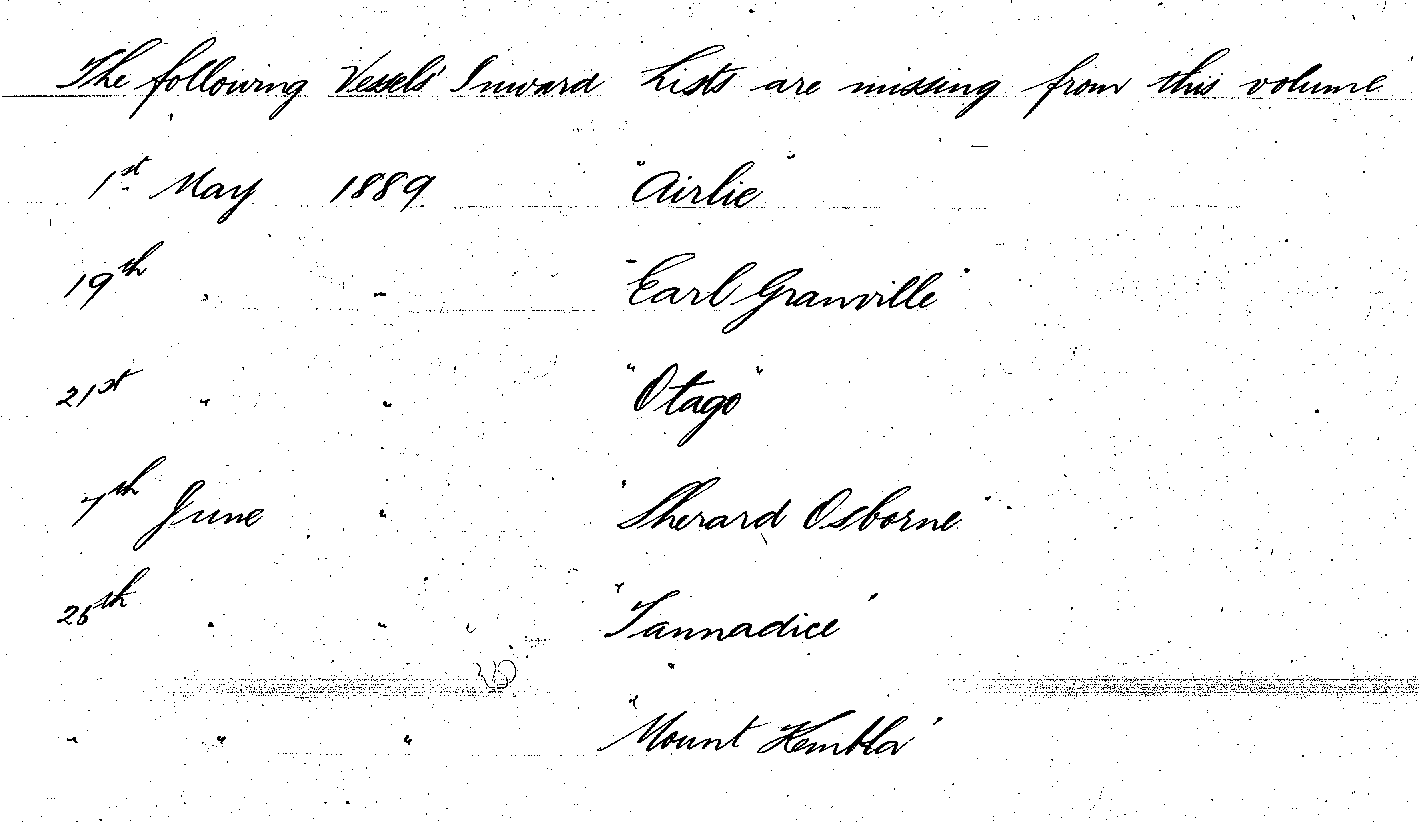 The following Vessels' Inward Lists are missing from this volume
1st May 1889 "Airlie"
19th " " "Earl Granville"
21st " " "Otago"
7th June " "Sherard Osborne"
" " "Tannadice"
" " " "Mount Kembla"